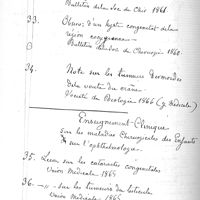 Bulletin de la Soc de Chir 1868
33. Observ. d'un kyste congenital de la
région coccygienne
Bulletin Société de Chirurgie 1868
34. Note sur les tumeurs dermoïdes
de la voute du crâne
35. Leçon sur les cataractes congénitales
Union Médicale 1869
Enseignement Clinique
sur les maladies Chirurgicales des Enfants
& sur l'ophthalmologie
36. —"— Sur les tumeurs du testicule
Union Médicale 1869